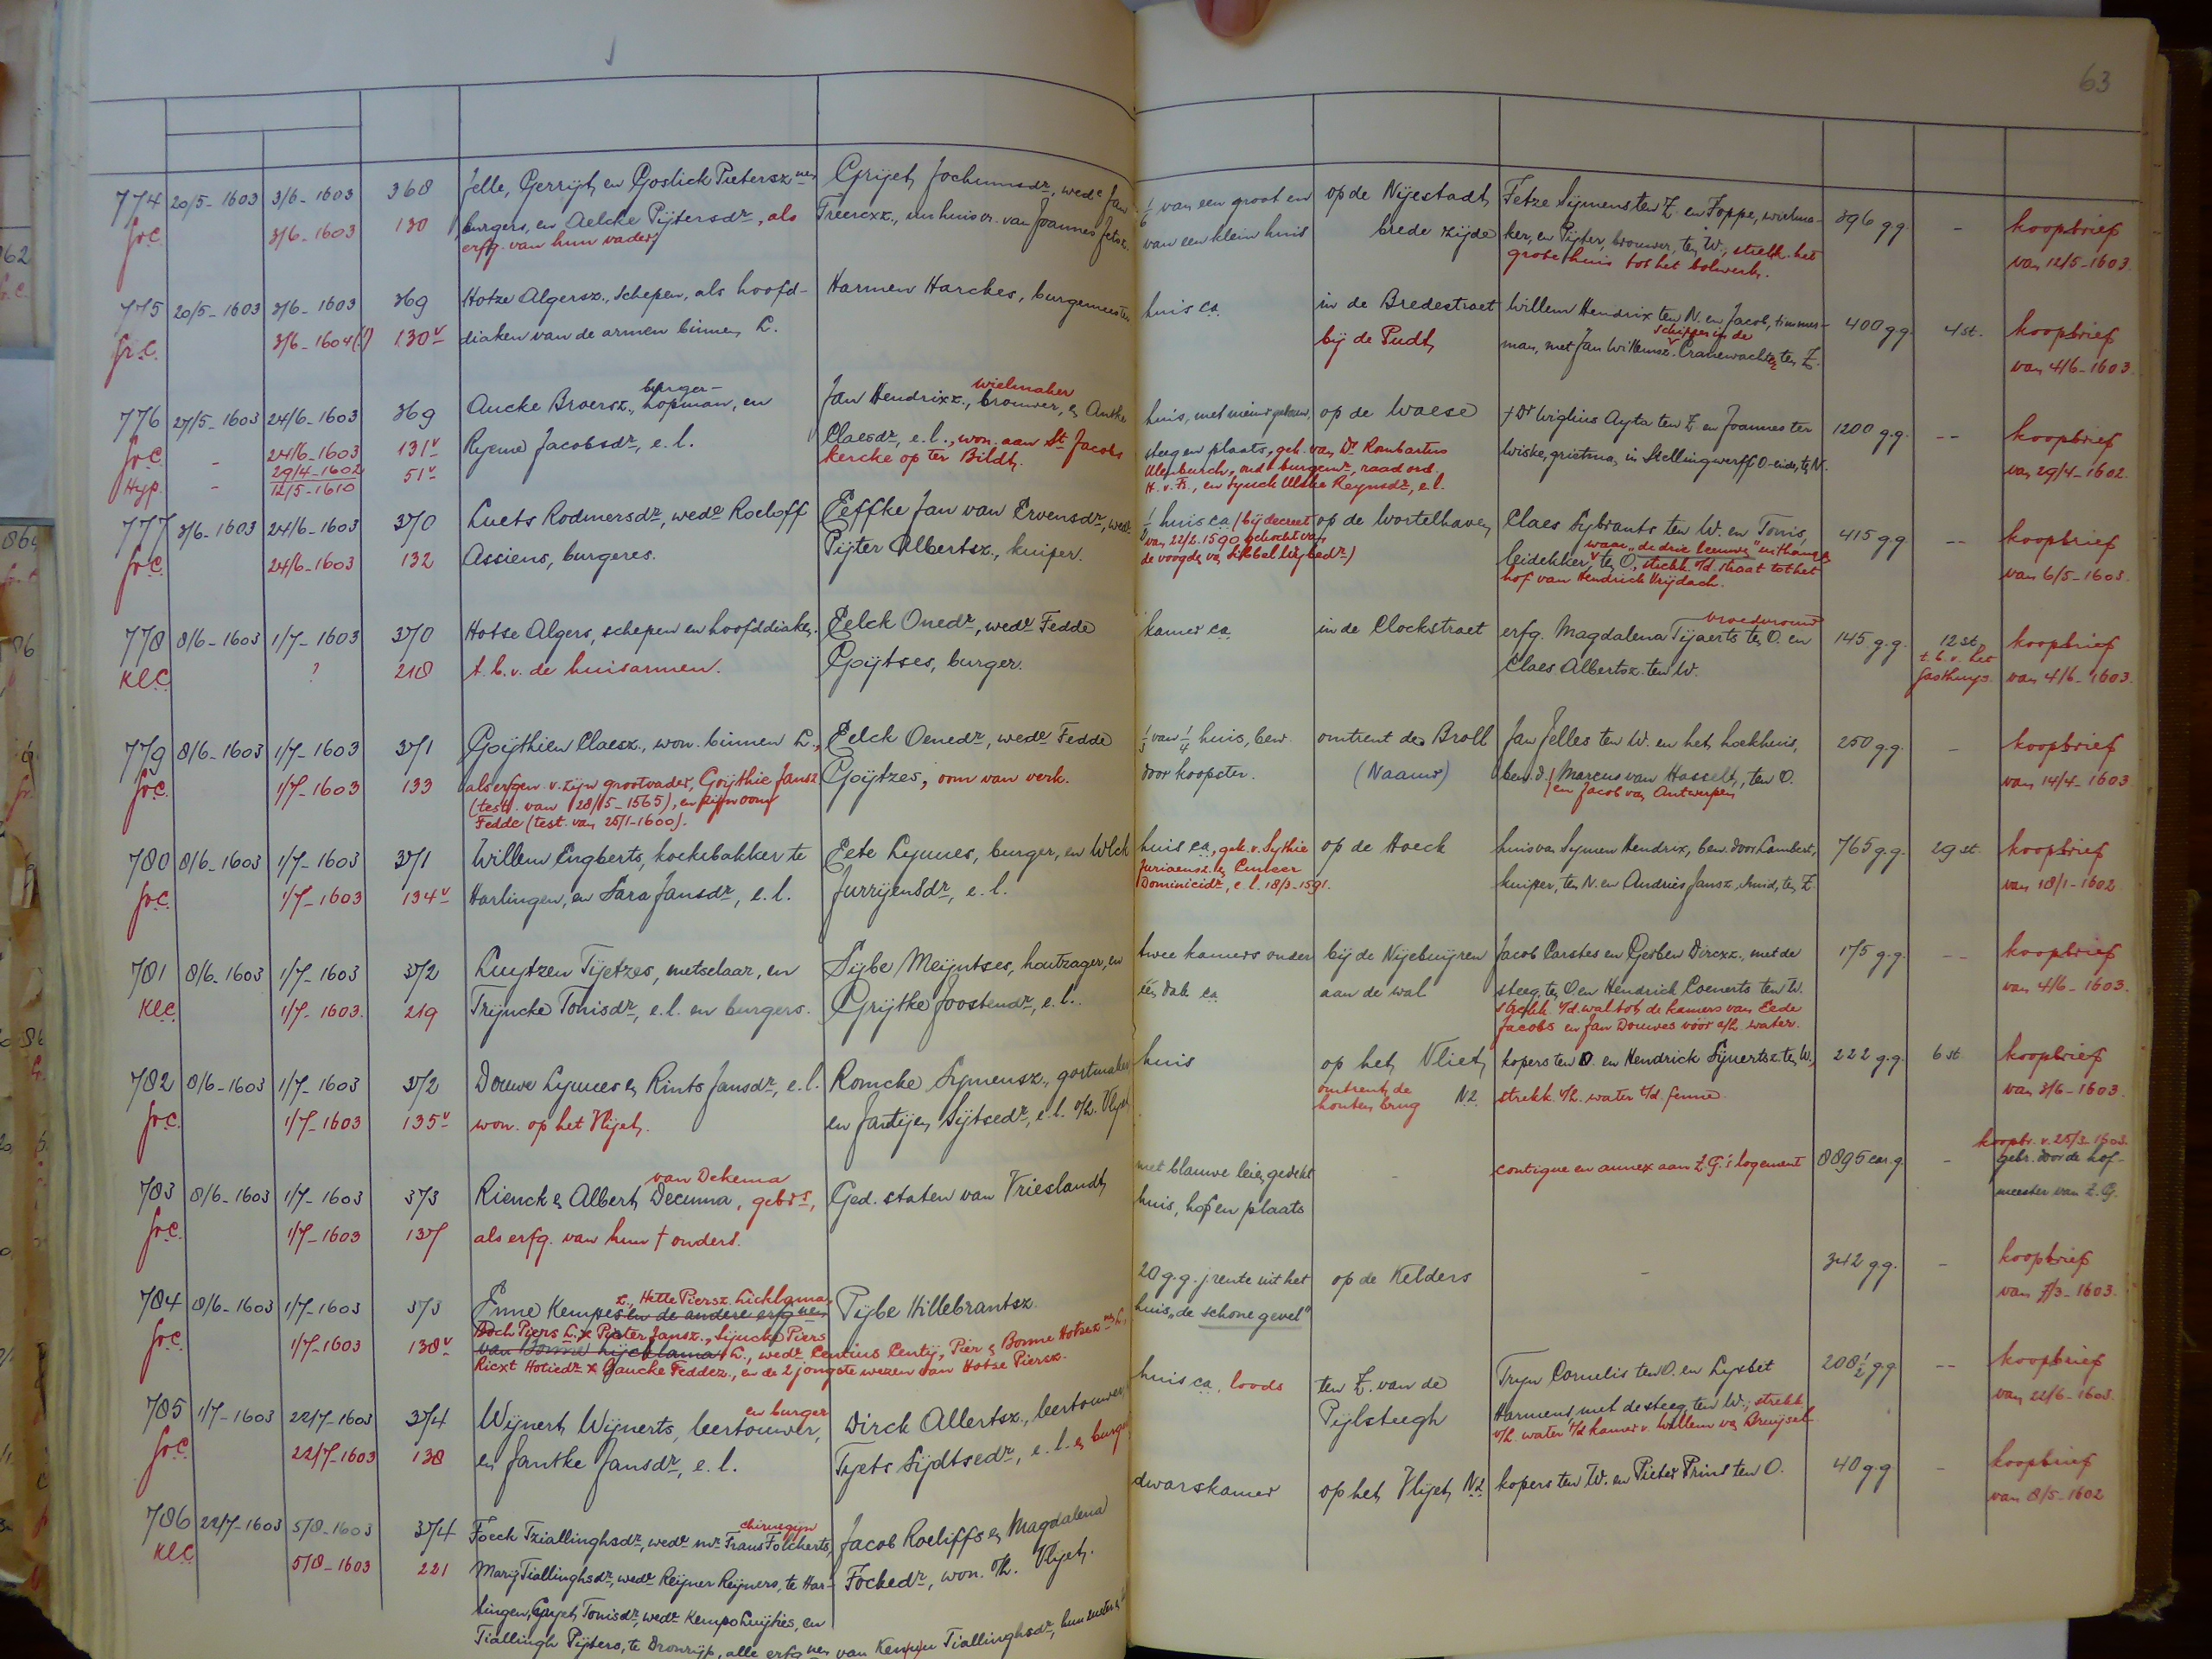 63
774 20/5-1603 3/6-1603 368 Jelle, Gerrijt en Goslick Pietersz nen Grijet Jochumsdr, wede Jan 1/6 van een groot en op de Nijestadt Fetze Sijmens ten Z. en Foppe, wielma- 396 g.g. - koopbrief
Gr.C. 3/6-1603 130 burgers, en Aelcke Pijtersdr, als Freercxz., van een klein huis brede zijde ker, en Pijter, brouwer, ten W., strekk. het van 12/5-1603.
erfg. van hun vader grote huis tot het bolwerk.
775 20/5-1603 3/6-1603 369 Hotze Algersz., schepen, als hoofd- Harmen Harckes, burgemeester huis ca. in de Bredestraet Willem Hendrix ten N. en Jacob, timmer- 400 g.g. 4 st. koopbrief
schipper in de
Gr.C. 3/6-1604(!) 130v diaken van de armen binnen L. bij de Pudt man, met Jan Willemsz. Cranewachter ten Z. van 4/6-1603.
burger- wielmaker
776 27/5-1603 24/6-1603 369 Aucke Broersz., hopman, en Jan Hendrixz., brouwer, en Anske huis, met nieuw gebouw, op de Waese † Dr Wiglius Ayta ten Z. en Joannes ter 1200 g.g. -- koopbrief
Gr.C. - 24/6-1603 131v Ryeme Jacobsdr, e.l. Claesdr, e.l., won. aan St Jacobs steeg en plaats, gek. van Dr Rombartus Wiske, grietma, in Stellingwerff O-einde, ten N. van 29/4-1602.
Hyp. - 29/4-1602 51v kercke op ter Bildt. Ulenburch, oud-burgemr, raad ord.
12/5-1610 H.v.Fr., en Sjuck Ulcke Reynsdr, e.l.
777 3/6-1603 24/6-1603 370 Luets Rodmersdr, wede Roeloff Eeffke Jan van Ervensdr, wede huis ca (bij decreet op de Wortelhaven Claes Sybrants ten W. en Tonis, 415 g.g. -- koopbrief
van 22/2-1590 gekocht van waar "de drie leeuwen" uithangen
Gr.C. 24/6-1603 132 Assiens, burgeres. Pijter Albertsz., kuiper. de voogden van leidekker, ten O., strekk. v/d. straat tot het van 6/5-1603.
hof van Hendrick Vrijdach.
vroedvrouw
778 8/6-1603 1/7-1603 370 Hotse Algers, schepen en hoofddiaken. Eelck Onedr, wede Fedde kamer ca. in de Clockstraet erfg. Magdalena Tijaerts ten O. en 145 g.g. 12 st. koopbrief
Kl.C. ? 218 t.b.v. de huisarmen. Goijtses, burger. Claes Albertsz. ten W. t.b.v. het Gasthuys. van 4/6-1603.
779 8/6-1603 1/7-1603 371 Goijthien Claesz., won. binnen L., Eelck Oenedr, wede Fedde 1/3 van 1/4 huis, bew. omtrent de Broll Jan Jelles ten W. en het hoekhuis, 250 g.g. - koopbrief
Gr.C. 1/7-1603 133 als erfgen. v. zijn grootvader, Goijthie Jansz. Goijtzes, oom van verk. door koopster. (Naauw) bew. d. Marcus van Hasselt, ten O. van 14/4-1603
(test. van 28/5-1565), en zijn oom en Jacob van Antwerpen
Fedde (test. van 25/1-1600).
780 8/6-1603 1/7-1603 371 Willem Engberts, koekebakker te Eete Lyuues, burger, en Wlck huis ca., gek. v. Sythie op de Hoeck huis van Symen Hendrix, bew. door Lambert, 765 g.g. 29 st. koopbrief
Gr.C. 1/7-1603 134v Harlingen, en Sara Jansdr, e.l. Jurrijensdr, e.l. Juriaensz. en kuiper, ten N. en Andries Jansz., smid, ten Z. van 18/1-1602
Dominicidr, e.l. 18/3-1591.
781 8/6-1603 1/7-1603 372 Luytzen Tijetzes, metselaar, en Sijbe Meijntses, houtzager, en twee kamers onder bij de Nijebuijren Jacob Carstes en Gerben Dircxz., met de 175 g.g. -- koopbrief
Kl.C. 1/7-1603. 219 Trijncke Tonisdr, e.l. en burgers. Grijtke Joostendr, e.l. één dak ca aan de wal steeg, ten O. en Hendrick Coenerts ten W. van 4/6-1603.
strekk. v/d. wal tot de kamers van Eede
Jacobs en Jan Douwes vóór a/h. water.
782 8/6-1603 1/7-1603 372 Douwe Lyuues en Rints Jansdr, e.l. Romcke Symensz., gortmaker huis op het Vliet kopers ten O. en Hendrick Sijuertsz. ten W., 222 g.g. 6 st. koopbrief
Gr.C. 1/7-1603 135v won. op het Vlijet. en Jantijen Sijtsedr, e.l. o/h. Vlijet omtrent de houten brug NZ. strekk. v/h. water t/d. fenne. van 3/6-1603.
van Dekema koopbr. v. 25/3-1603.
783 8/6-1603 1/7-1603 373 Rienck en Albert Decuma, gebrs, Ged. staten van Vrieslandt met blauwe leien gedekt - contigue en annex aan Z.G.'s logement 8895 car.g. - gebr. door de hof-
Gr.C. 1/7-1603 137 als erfg. van hun † ouders. huis, hof en plaats meester van Z.G.
784 8/6-1603 1/7-1603 373 Enne Kempesz., Hette Piersz. Lichlama, en de andere erfg nen Tijbe Hillebrantsz. 20 g.g. j. rente uit het op de Kelders - 342 g.g. - koopbrief
Gr.C. 1/7-1603 138v Doch Piers L. x Pieter Jansz., Sijncke Piers huis, "de schone gevel" van 7/3-1603.
L., wede Centius Centij, Pier en Bonne Hotsesz nen L.,
Ricxt Hotiedr x Gaucke Feddez., en de 2 jongste wezen van Hotse Piersz.
en burger
785 1/7-1603 22/7-1603 374 Wijnert Wijnerts, leertouwer, Dirck Allertsz., leertouwer, huis ca, loods ten Z. van de Tryn Cornelis ten O. en Lysbet 208½ g.g. -- koopbrief
Gr.C. 22/7-1603 138 en Jantke Jansdr, e.l. Tyets Sijdtsedr, e.l. en burgers Pijlsteegh Harmens, met de steeg, ten W., strekk. van 22/6-1603.
v/h. water t/d kamer v. Willem van Bruijsel.
chirurgijn
786 22/7-1603 5/8-1603 374 Foeck Tziallinghsdr, wede mr Frans Folckerts, Jacob Roeliffs en Magdalena dwarskamer op het Vlijet NZ kopers ten W. en Pieter Prins ten O. 40 g.g. - koopbrief
Kl.C. 5/8-1603 221 Mary Tiallinghsdr, wede Reijner Reijners, te Har- Fockedr, won. o/h. Vlijet. van 8/5-1602
lingen, Grijet Tonisdr, wede Kempo Luijties, en
Tiallingh Pijters, te Dronrijp, alle erfg nen van Kempu Tiallinghsdr, hun zuster en